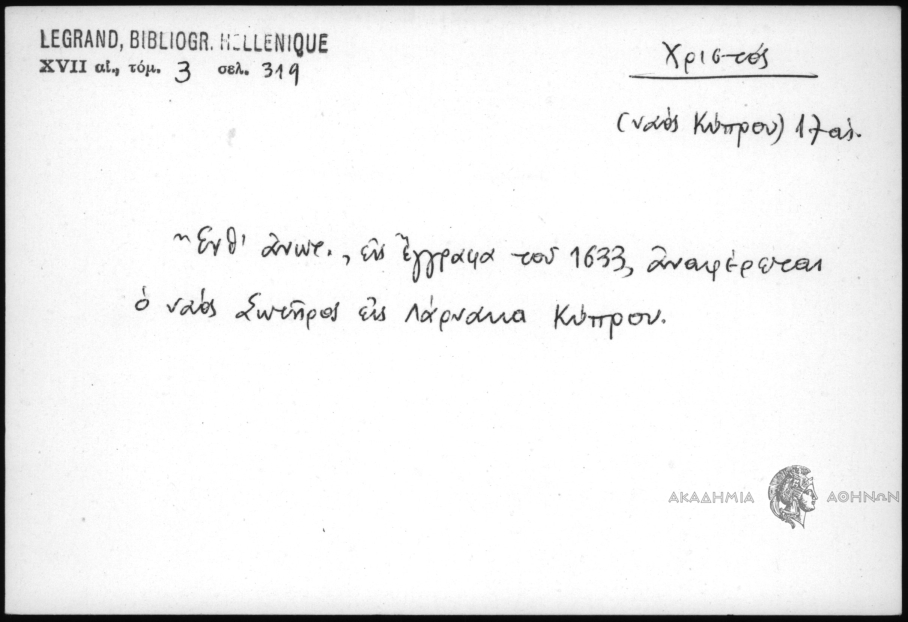 LEGRAND, BIBLIOGR. HELLENIQUE
XVII αἰ., τόμ. 3 σελ. 319
Χριστός
(ναὸς Κύπρου) 17 αἰ.
Ἔνθ' ἀνωτ., εἰς ἔγγραφα τοῦ 1633, ἀναφέρεται
ὁ ναὸς Σωτῆρος εἰς Λάρνακα Κύπρου.
ΑΚΑΔΗΜΙΑ ΑΘΗΝΩΝ